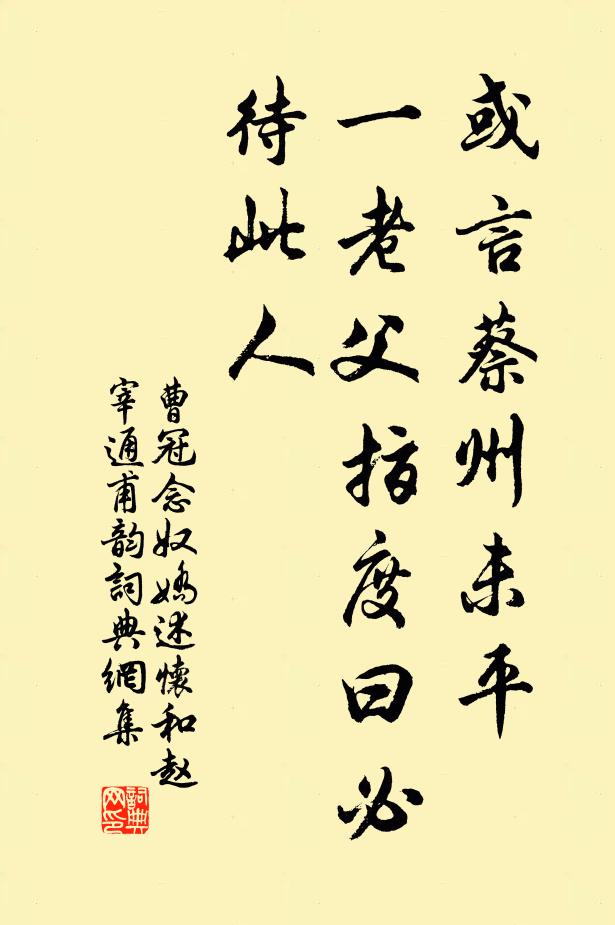 或言蔡州未平
一老父指度曰必
待此人
曹冠念奴嬌述懷和赵
宰通甫韵詞典網集
詞典
网印